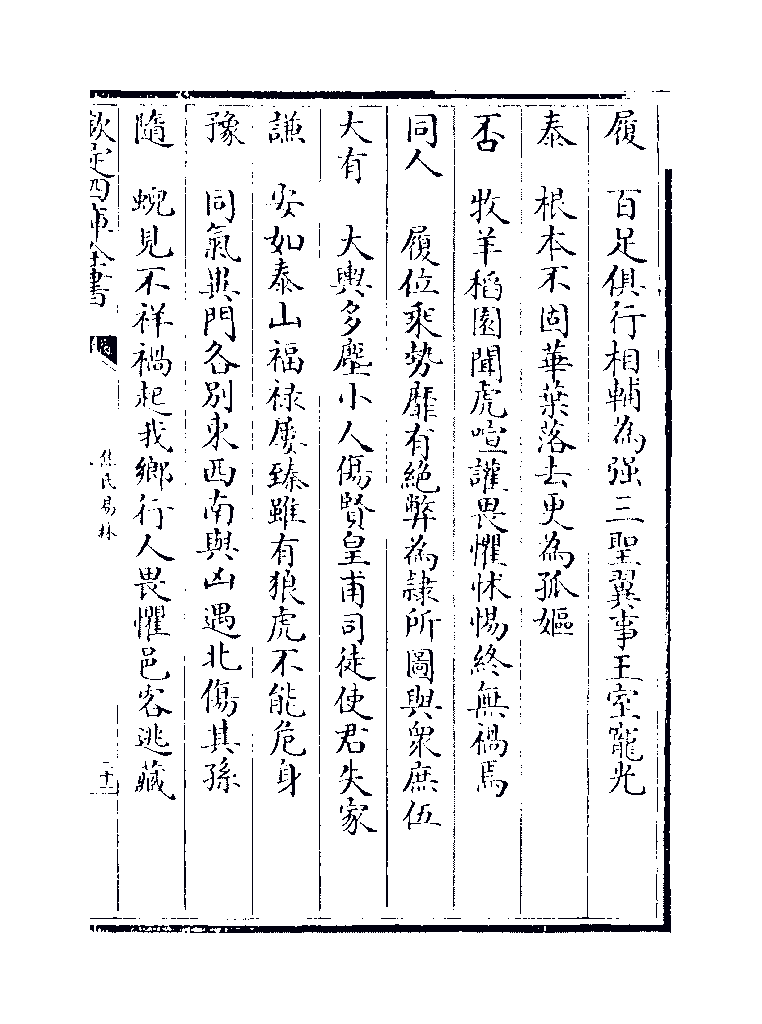 履　百足俱行相輔為强三聖翼事王室寵光
泰　根本不固華葉落去更為孤嫗
否　牧羊稻園聞虎喧讙畏懼怵惕終無禍焉
同人　履位乘勢靡有絶弊為隷所圖與衆庶伍
大有　大輿多塵小人傷賢皇甫司徒使君失家
謙　安如泰山福禄屢臻雖有狼虎不能危身
豫　同氣異門各別東西南與凶遇北傷其孫
隨　蜺見不祥禍起我鄉行人畏懼邑客逃藏
欽定四庫全書
焦氏易林